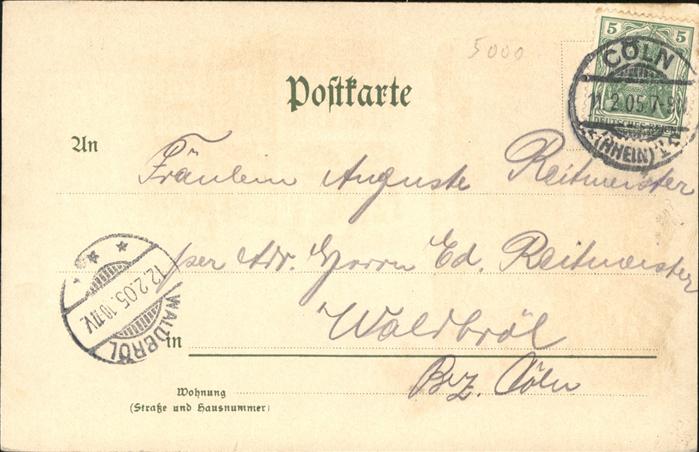 5000
5 5
DEUTSCHES REICH
CÖLN
11.2.05.7-8
(RHEIN)
Postkarte
An Fräulein Auguste Reitmeister
per Adr. Herrn Ed. Reitmeister
in Waldbröl
Bez. Cöln
WALDBRÖL
12.2.05.
Wohnung
(Straße und Hausnummer)